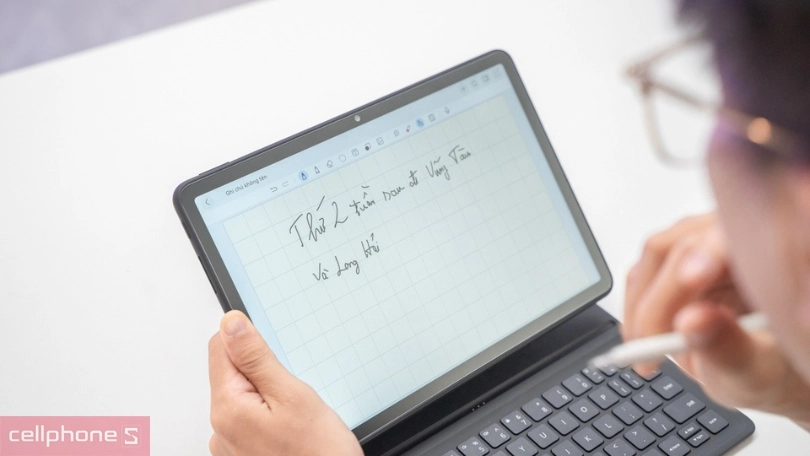 Ghi chú không tên
Thứ 2 tuần sau đi Vũng Tàu
Và Long Hải
Y U I O P
cellphoneS